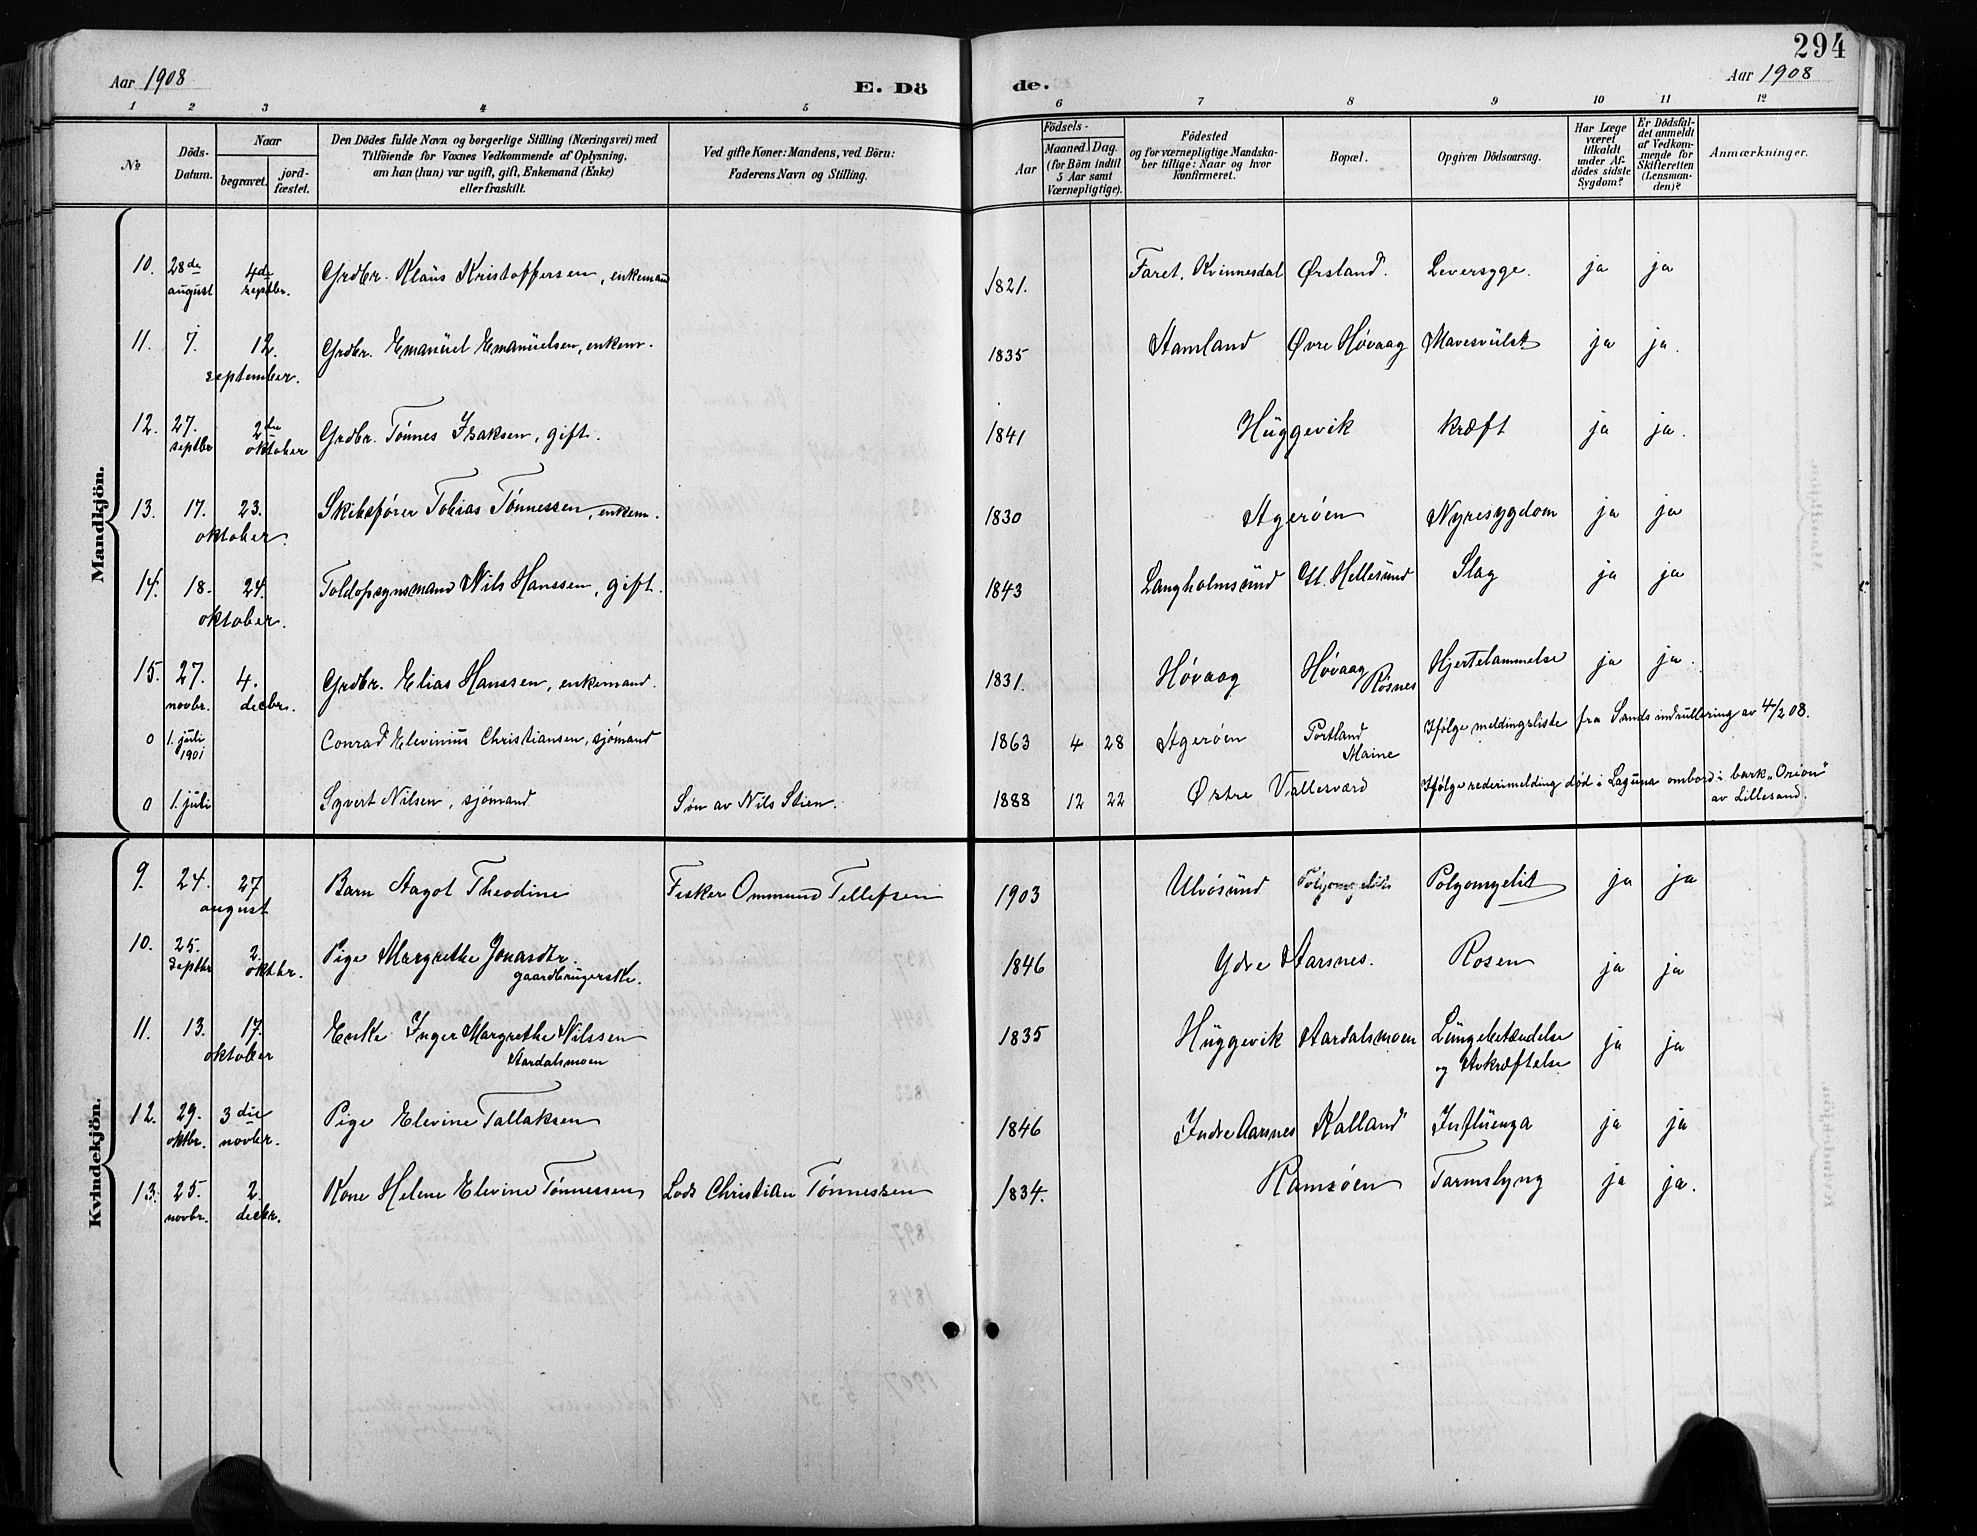 294
Aar 1908
E. Dö
de.
Aar 1908
1 2 3 4 5 6 7 8 9 10 11 12
No
Döds-Datum.
Naar
begravet.
jord-fæstet.
Den Dödes fulde Navn og borgerlige Stilling (Næringsvei) med
Tilföiende for Voxnes Vedkommende af Oplysning,
om han (hun) var ugift, gift, Enkemand (Enke)
eller fraskilt.
Ved gifte Koner: Mandens, ved Börn:
Faderens Navn og Stilling.
Födsels-
Aar
Maaned Dag.
(for Börn indtil
5 Aar samt
Værnepligtige).
Födested
og for værnepligtige Mandska-
ber tillige: Naar og hvor
konfirmeret.
Bopæl.
Opgiven Dödsaarsag.
Har Læge
været
tilkaldt
under Af-
dödes sidste
Sygdom?
Er Dödsfal-
det anmeldt
af Vedkom-
mende for
Skifteretten
(Lensman-
den)?
Anmærkninger.
Mandkjön.
10. 28de august 4de septbr. Grdbr. Klaus Kristoffersen, enkemand 1821. Faret, Kvinnesdal Ørsland. Leversyge. ja ja
11. 7. 12. september. Grdbr. Emanuel Emanuelsen, enkem. 1835 Stamland Øvre Høvaag Mavesvulst ja ja.
12. 27. septbr 2den oktober Grdbr. Tønnes Isaksen, gift. 1841 Huggevik kræft ja ja.
13. 17. 23. oktober. Skibsfører Tobias Tønnessen, enkem. 1830 Agerøen Nyresygdom ja ja
14. 18. 24. oktober. Toldopsynsmand Nils Hanssen, gift. 1843 Langholmsund Hellesund Slag ja ja
15. 27. novbr. 4. decbr. Grdbr. Elias Hanssen, enkemand. 1831. Høvaag Høvaag Røsnes Hjertelammelse ja ja.
0 1. juli 1901 Conrad Elevinius Christiansen, sjømand 1863 4 28 Agerøen Portland Maine Ifølge meldingsliste fra Sands indrullering av 4/2 08.
0 1. juli Syvert Nilsen, sjømand Søn av Nils Stien. 1888 12 22 Østre Vallesværd Ifølge rederimelding død i Laguna ombord i bark "Orion"
av Lillesand.
Kvindekjön.
9. 24. 27 august Barn Aagot Theodine Fisker Ommund Tellefsen 1903 Ulvøsund Polyomyelit ja ja
10. 25. septbr 2. oktbr. Pige Margrethe Jonasdtr. gaardbrugerske. 1846 Ydre Aarsnes. Rosen ja ja
11. 13. 17. oktober Enke Inger Margrethe Nilssen Aardalsmoen 1835 Huggevik Aardalsmoen Lungebetændelse og Avkræftelse ja ja
12. 29. oktbr. 3die novbr. Pige Elevine Tallaksen 1846 Indre Aarsnes Kalland Influenza ja ja
13. 25. novbr. 2. decbr. Kone Helene Elevine Tønnessen Lods Christian Tønnessen 1834. Ramsøen Tarmslyng ja ja.